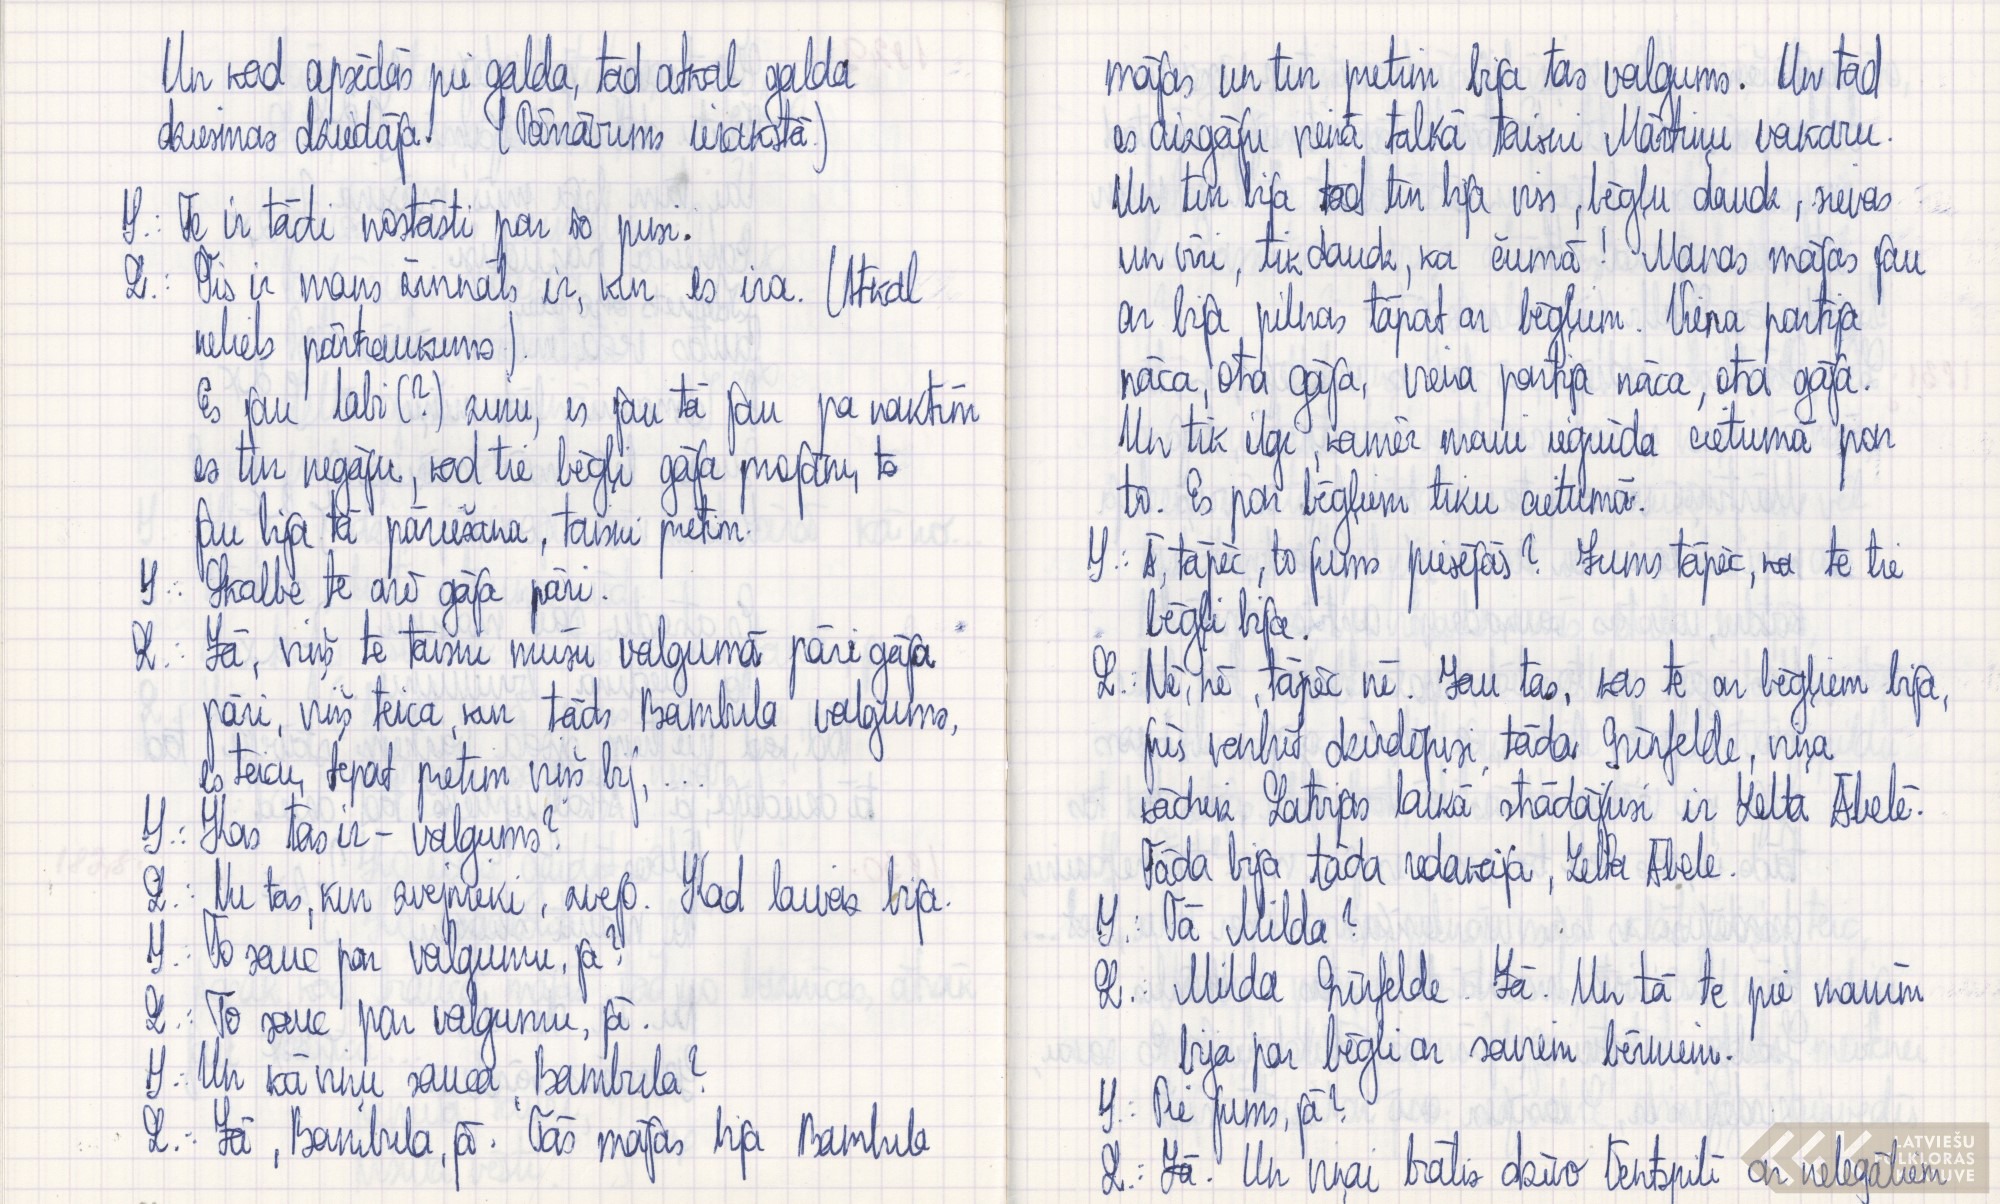 Un kad apsēdās pie galda, tad atkal galda
dziesmas dziedāja. (Pārtrāvums ierakstā.)
Y.: Te ir tādi nostāsti par šo pusi.
Z.: Šis ir mans ir, kur es ira. (Atkal
neliels pārtraukums).
Es jau labi (?) zinu, es jau tā jau pa naktīm
es tur negāju, kad tie bēgļi gāja projām, to
jau bija tā pāriešana, taisni pretim.
Y.: Skalbe te arī gāja pāri.
Z.: Jā, viņš te taisni mūsu valgumā pāri gāja
pāri, viņš teica, kur tāds Bambula valgums,
es teicu, tepat pretim viņš bij, ...
Y.: Kas tas ir – valgums?
Z.: Nu tas, kur zvejnieki, zvejo. Kad laivas bija.
Y.: To sauc par valgumu, jā?
Z.: To sauc par valgumu, jā.
Y.: Un kā viņu sauca, Bambula?
Z.: Jā, Bambula, jā. Tās mājas bija Bambula
mājas un tur pretim bija tas valgums. Un tad
es aizgāju vienā talkā taisni Mārtiņu vakaru.
Un tur bija tad tur bija viss, bēgļu daudz, sievas
un vīri, tik daudz, ka čumā! Manas mājas jau
ar bija pilnas tāpat ar bēgļiem. Viena partija
nāca, otra gāja, viena partija nāca, otra gāja.
Un tik ilgi, kamēr mani iegrūda cietumā par
to. Es par bēgļiem tiku cietumā.
Y.: Ā, tāpēc, to jums piesējās? Jums tāpēc, ka te tie
bēgļi bija.
Z.: Nē, nē, tāpēc nē. Jau tas, kas te ar bēgļiem bija,
jūs varbūt dzirdējusi, tāda Grīnfelde, viņa
kādreiz Latvijas laikā strādājusi ir Zelta Ābelē.
Tāda bija tāda redakcija, Zelta Ābele.
Y.: Tā Milda?
Z.: Milda Grīnfelde. Jā. Un tā te pie manīm
bija par bēgli ar saviem bērniem.
Y.: Pie jums, jā?
Z.: Jā. Un viņai brālis dzīvo Ventspilī ar nelegāliem
LATVIEŠU
FOLKLORAS
KRĀTUVE